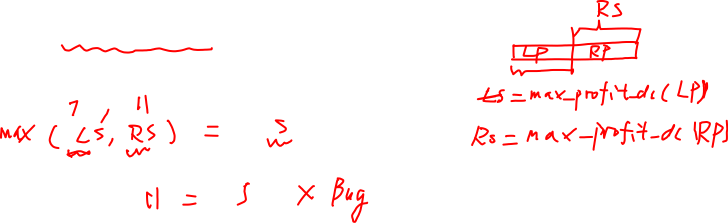 RS
LP RP
LS = max_profit_dc(LP)
RS = max_profit_dc(RP)
7, 11
max (LS, RS) = S
11 = S X Bug